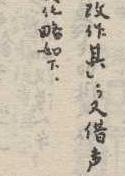 改作其,又借声
化略如下.